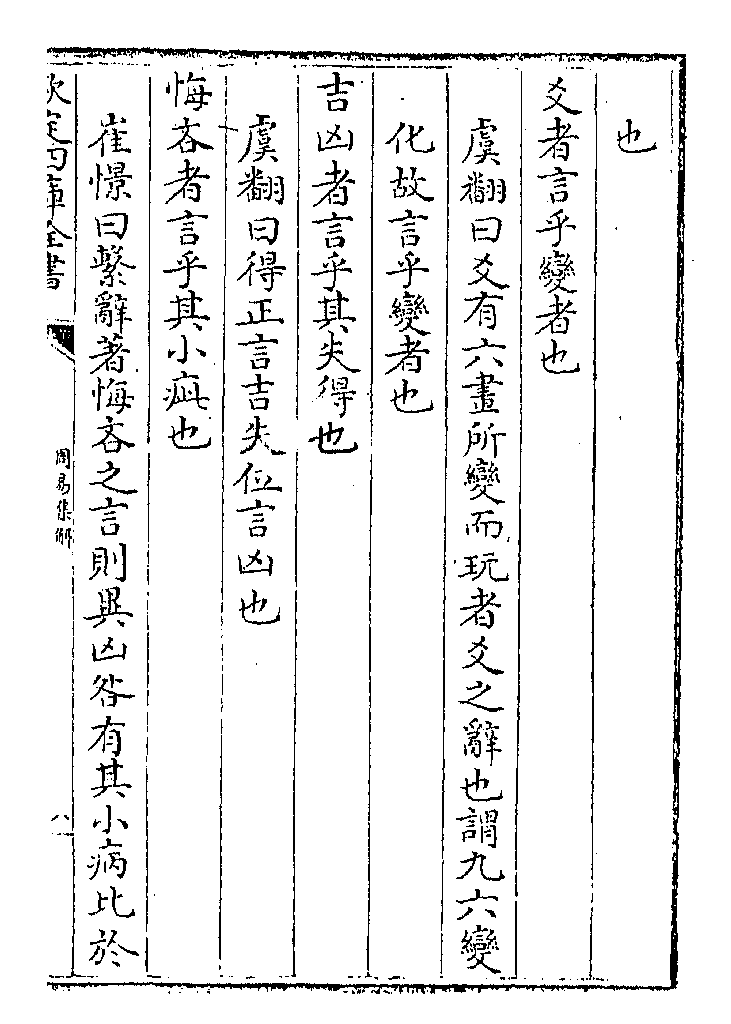 也
爻者言乎變者也
虞翻曰爻有六畫所變而玩者爻之辭也謂九六變
化故言乎變者也
吉凶者言乎其失得也
虞翻曰得正言吉失位言凶也
悔吝者言乎其小疵也
崔憬曰繫辭著悔吝之言則異凶咎有其小病比於
欽定四庫全書
周易集解
八